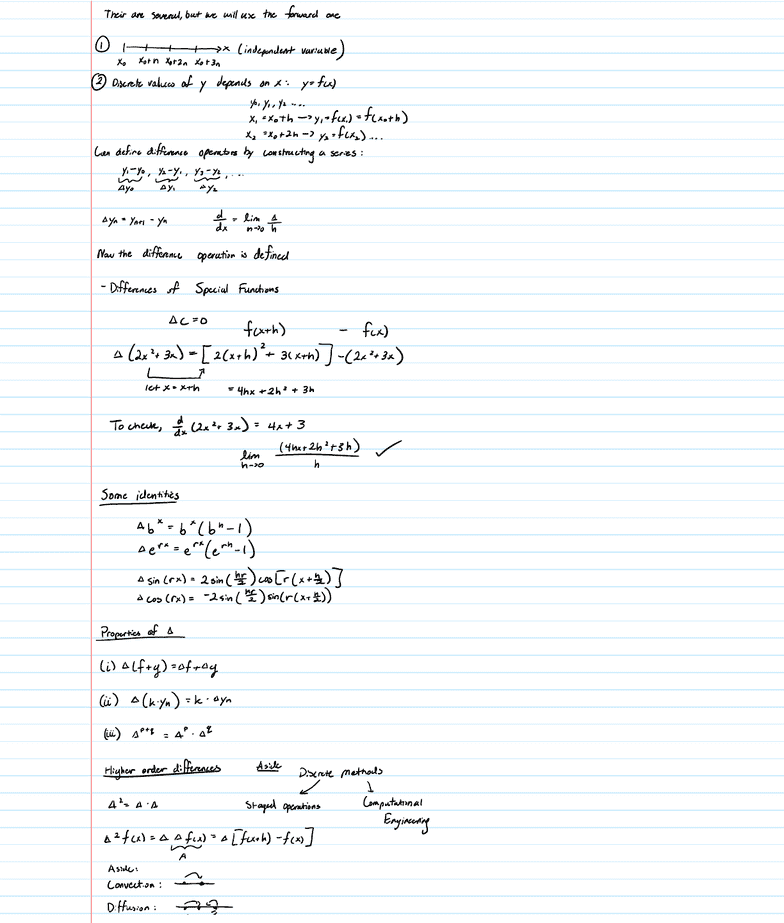 Their are several, but we will use the forward one
① x (independent variable)
x₀ x₀+n x₀+2n x₀+3n
② Discrete values of y depends on x : y=f(x)
y₀, y₁, y₂ ....
x₁ = x₀+h → y₁=f(x₁) = f(x₀+h)
x₂ = x₀+2h → y₂=f(x₂)...
Can define difference operators by constructing a series:
y₁-y₀, y₂-y₁, y₃-y₂, ...
Δy₀ Δy₁ Δy₂
Δyₙ = yₙ₊₁ - yₙ d/dx = lim h→0 Δ/h
Now the difference operation is defined
- Differences of Special Functions
ΔC=0
f(x+h) - f(x)
Δ(2x²+3x) = [2(x+h)²+ 3(x+h)]-(2x²+3x)
let x = x+h = 4hx + 2h² + 3h
To check, d/dx (2x²+3x) = 4x+3
lim h→0 (4hx+2h²+3h)/h ✓
Some identities
Δb^x = b^x(b^h-1)
Δe^rx = e^rx(e^rh-1)
Δ sin(rx) = 2sin(hr/2)cos[r(x+h/2)]
Δ cos(rx) = -2sin(hr/2)sin(r(x+h/2))
Properties of Δ
(i) Δ(f+y)=Δf+Δy
(ii) Δ(k·yₙ) = k·Δyₙ
(iii) Δ^p+q = Δ^p · Δ^q
Higher order differences Aside Discrete methods
Δ²= Δ·Δ Staged operations Computational
Engineering
Δ²f(x) = Δ Δf(x) = Δ[f(x+h)-f(x)]
A
Aside:
Convection:
Diffusion: